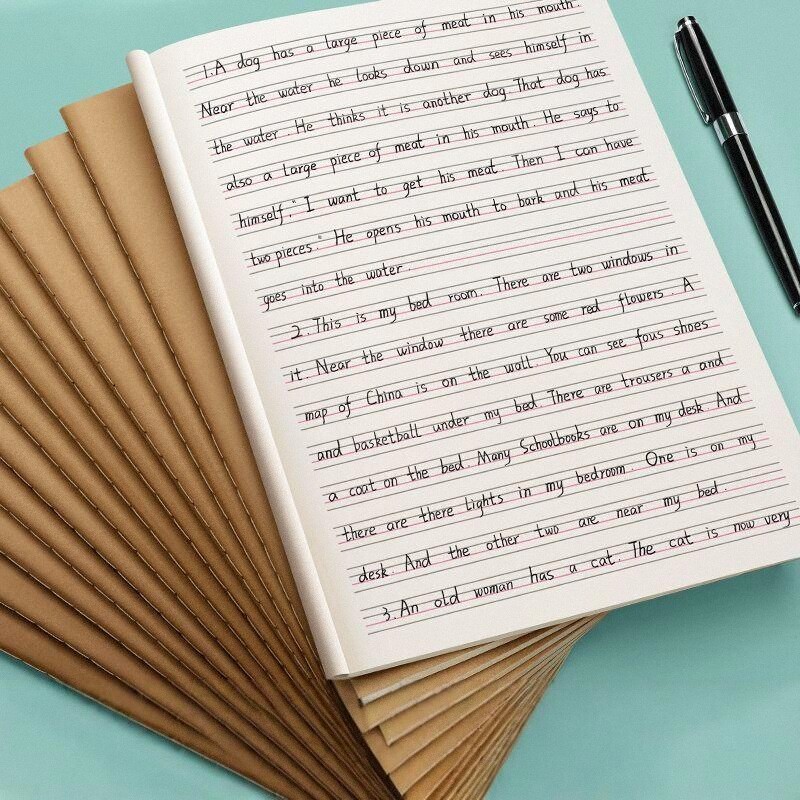 1. A dog has a large piece of meat in his mouth.
Near the water he looks down and sees himself in
the water. He thinks it is another dog. That dog has
also a large piece of meat in his mouth. He says to
himself," I want to get his meat. Then I can have
two pieces." He opens his mouth to bark and his meat
goes into the water.
2. This is my bed room. There are two windows in
it. Near the window there are some red flowers. A
map of China is on the wall. You can see fous shoes
and basketball under my bed. There are trousers a and
a coat on the bed. Many Schoolbooks are on my desk. And
there are there lights in my bedroom. One is on my
desk. And the other two are near my bed.
3. An old woman has a cat. The cat is now very